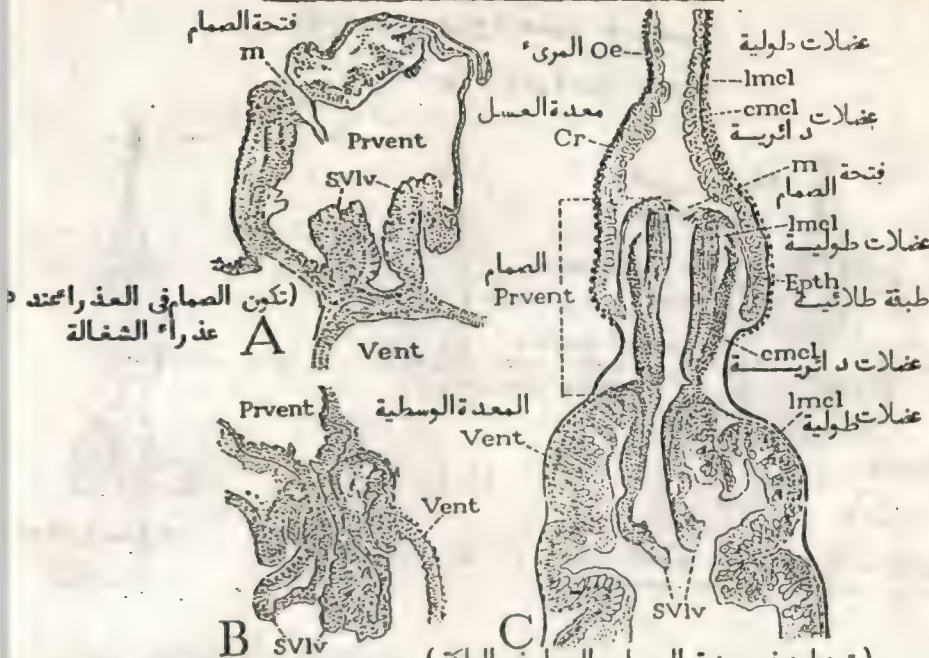 فتحة الصمام
m
Prvent
SVlv
(تكون الصمام فى العذراء عند
عذراء الشغالة
A
Vent
Prvent
Vent
B
SVlv
المرىء Oe
معدة العسل
Cr
الصمام
Prvent
المعدة الوسطية
Vent
SVlv
C
عضلات طولية
lmcl
cmcl عضلات
دائرية
m فتحة
الصمام
lmcl
عضلات طولية
Epth
طبقة طلائية
cmcl
عضلات دائرية
lmcl
عضلات طولية